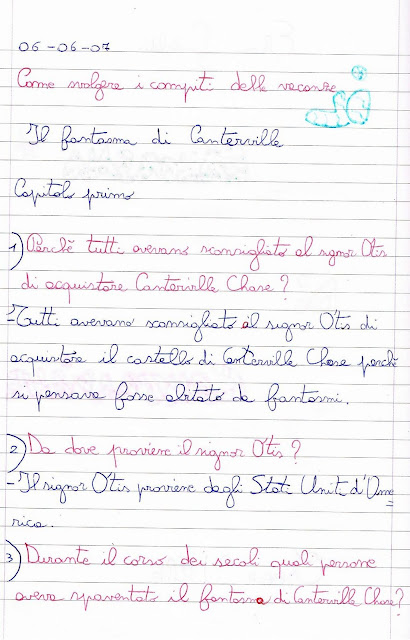 06-06-07
Come svolgere i compiti delle vacanze
Il fantasma di Canterville
Capitolo primo
1) Perchè tutti avevano sconsigliato al signor Otis
di acquistare Canterville Chase?
-Tutti avevano sconsigliato al signor Otis di
acquistare il castello di Canterville Chase perchè
si pensava fosse abitato da fantasmi.
2) Da dove proviene il signor Otis?
-Il signor Otis proviene dagli Stati Uniti d'Ame
rica.
3) Durante il corso dei secoli quali persone
aveva spaventato il fantasma di Canterville Chase?